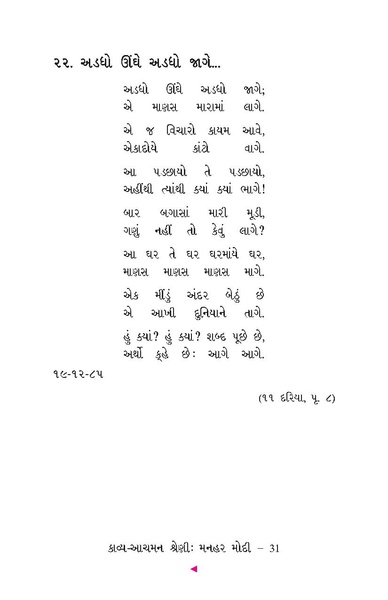 ૨૨. અડધો ઊંઘે અડધો જાગે...
અડધો ઊંઘે અડધો જાગે;
એ માણસ મારામાં લાગે.
એ જ વિચારો કાયમ આવે,
એકાદોયે કાંટો વાગે.
આ પડછાયો તે પડછાયો,
અહીંથી ત્યાંથી ક્યાં ક્યાં ભાગે!
બાર બગાસાં મારી મૂડી,
ગણું નહીં તો કેવું લાગે?
આ ઘર તે ઘર ઘરમાંયે ઘર,
માણસ માણસ માણસ માગે.
એક મીંડું અંદર બેઠું છે
એ આખી દુનિયાને તાગે.
હું ક્યાં? હું ક્યાં? શબ્દ પૂછે છે,
અર્થો કહે છેઃ આગે આગે.
૧૯-૧૨-૮૫
(૧૧ દરિયા, પૃ. ૮)
કાવ્ય-આચમન શ્રેણીઃ મનહર મોદી – 31